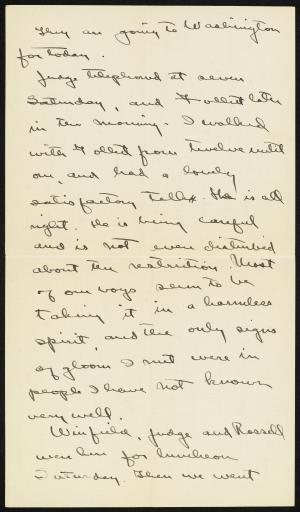 They are going to Washington
for today.
Judge telephoned at seven
Saturday, and Follett later
in the morning. I walked
with Follett from twelve until
one, and had a lovely
satisfactory talk. He is all
right. He is being careful
and is not even disturbed
about the restriction. Most
of our boys seem to be
taking it in a harmless
spirit, and the only signs
of gloom I met were in
people I have not known
very well.
Winfield, Judge and Russell
were here for luncheon
Saturday. Then we went